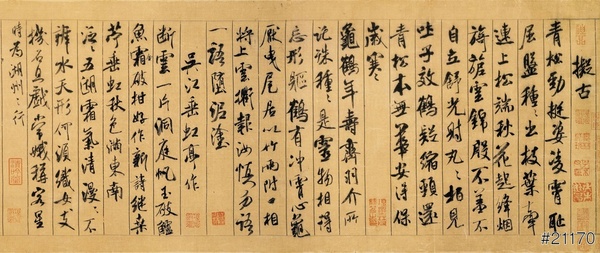 擬古
青松勁挺姿凌霄恥
屈盤種種出枝葉牽
連上松端秋花起絳烟
旖旎雲錦殷不羞不
自立舒光射丸丸柏見
吐子效鶴疑縮頸還
青松本無華安得保
歲寒
龜鶴年壽齊羽介所
託殊種種是靈物相得
忘形軀鶴有冲霄心龜
厭曳尾居以竹兩附口相
將上雲衢報汝慎勿語
一語墮泥塗
吳江垂虹亭作
斷雲一片洞庭帆玉破鱸
魚霜破柑好作新詩繼桑
苧垂虹秋色滿東南
泛泛五湖霜氣清漫漫不
辨水天形何須織女支
機石且戲常娥稱客星
時為湖州之行
#21170